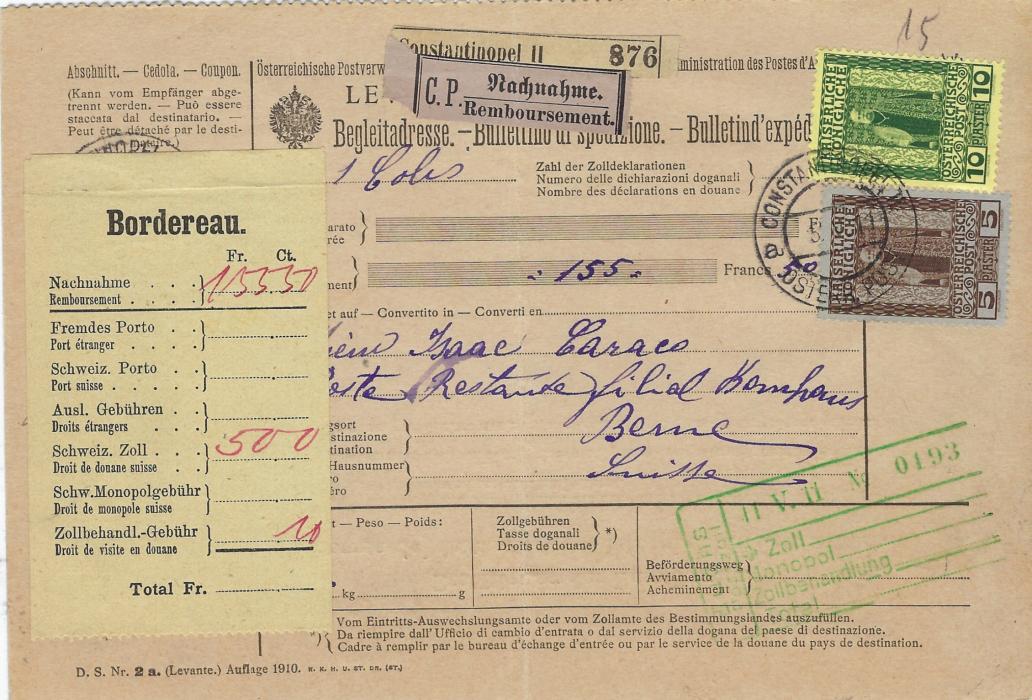 15
Constantinopel II 876
Abschnitt. — Cedola. — Coupon.
Österreichische Postverw
ministration des Postes d'A
(Kann vom Empfänger abge-
trennt werden. — Può essere
staccata dal destinatario. —
Peut être détaché par le desti-
nataire.)
LE
C. P. Nachnahme.
Remboursement.
Begleitadresse. — Bullettino di spedizione. — Bulletin d'expéd
1 Colis
Zahl der Zolldeklarationen
Numero delle dichiarazioni doganali
Nombre des déclarations en douane
KAISERLICHE KÖNIGLICHE ÖSTERREICHISCHE POST
10 PIASTER 10
CONSTANTINOPEL
KAISERLICHE KÖNIGLICHE ÖSTERREICHISCHE POST
5 PIASTER 5
Bordereau.
Fr. Ct.
Nachnahme . . .
Remboursement . . . 155 50
Fremdes Porto . .
Port étranger . . .
Schweiz. Porto .
Port suisse . . . . .
Ausl. Gebühren . .
Droits étrangers . .
Schweiz. Zoll . . .
Droit de douane suisse . . 5 00
Schw. Monopolgebühr
Droit de monopole suisse
Zollbehandl.-Gebühr
Droit de visite en douane 10
Total Fr.
arato
rée
ment)
" 155 " Francs 50
et auf — Convertito in — Converti en
Isaac Caraco
Restante filial Komphaus
gsort
stinazione
tination
Berne
Hausnummer
ro
éro
Suisse
11 V. 11 No 0193
Zoll
Monopol
Zollbehandlung
Total
t — Peso — Poids:
kg g
Zollgebühren
Tasse doganali
Droits de douane *)
Beförderungsweg
Avviamento
Acheminement
*) Vom Eintritts-Auswechslungsamte oder vom Zollamte des Bestimmungslandes auszufüllen.
Da riempire dall' Ufficio di cambio d'entrata o dal servizio della dogana del paese di destinazione.
Cadre à remplir par le bureau d'échange d'entrée ou par le service de la douane du pays de destination.
D. S. Nr. 2 a. (Levante.) Auflage 1910. K. K. H. U. ST. DR. (ST.)